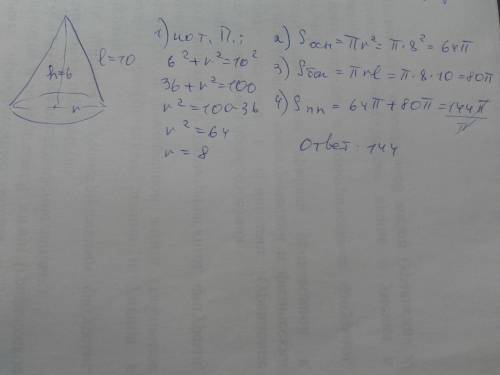 l=10
h=6
r
1) по т. П.:
6²+r²=10²
36+r²=100
r²=100-36
r²=64
r=8
2) Sосн=πr²=π·8²=64π
3) Sбок=πrl=π·8·10=80π
4) Sпп=64π+80π=144π
π
Ответ: 144